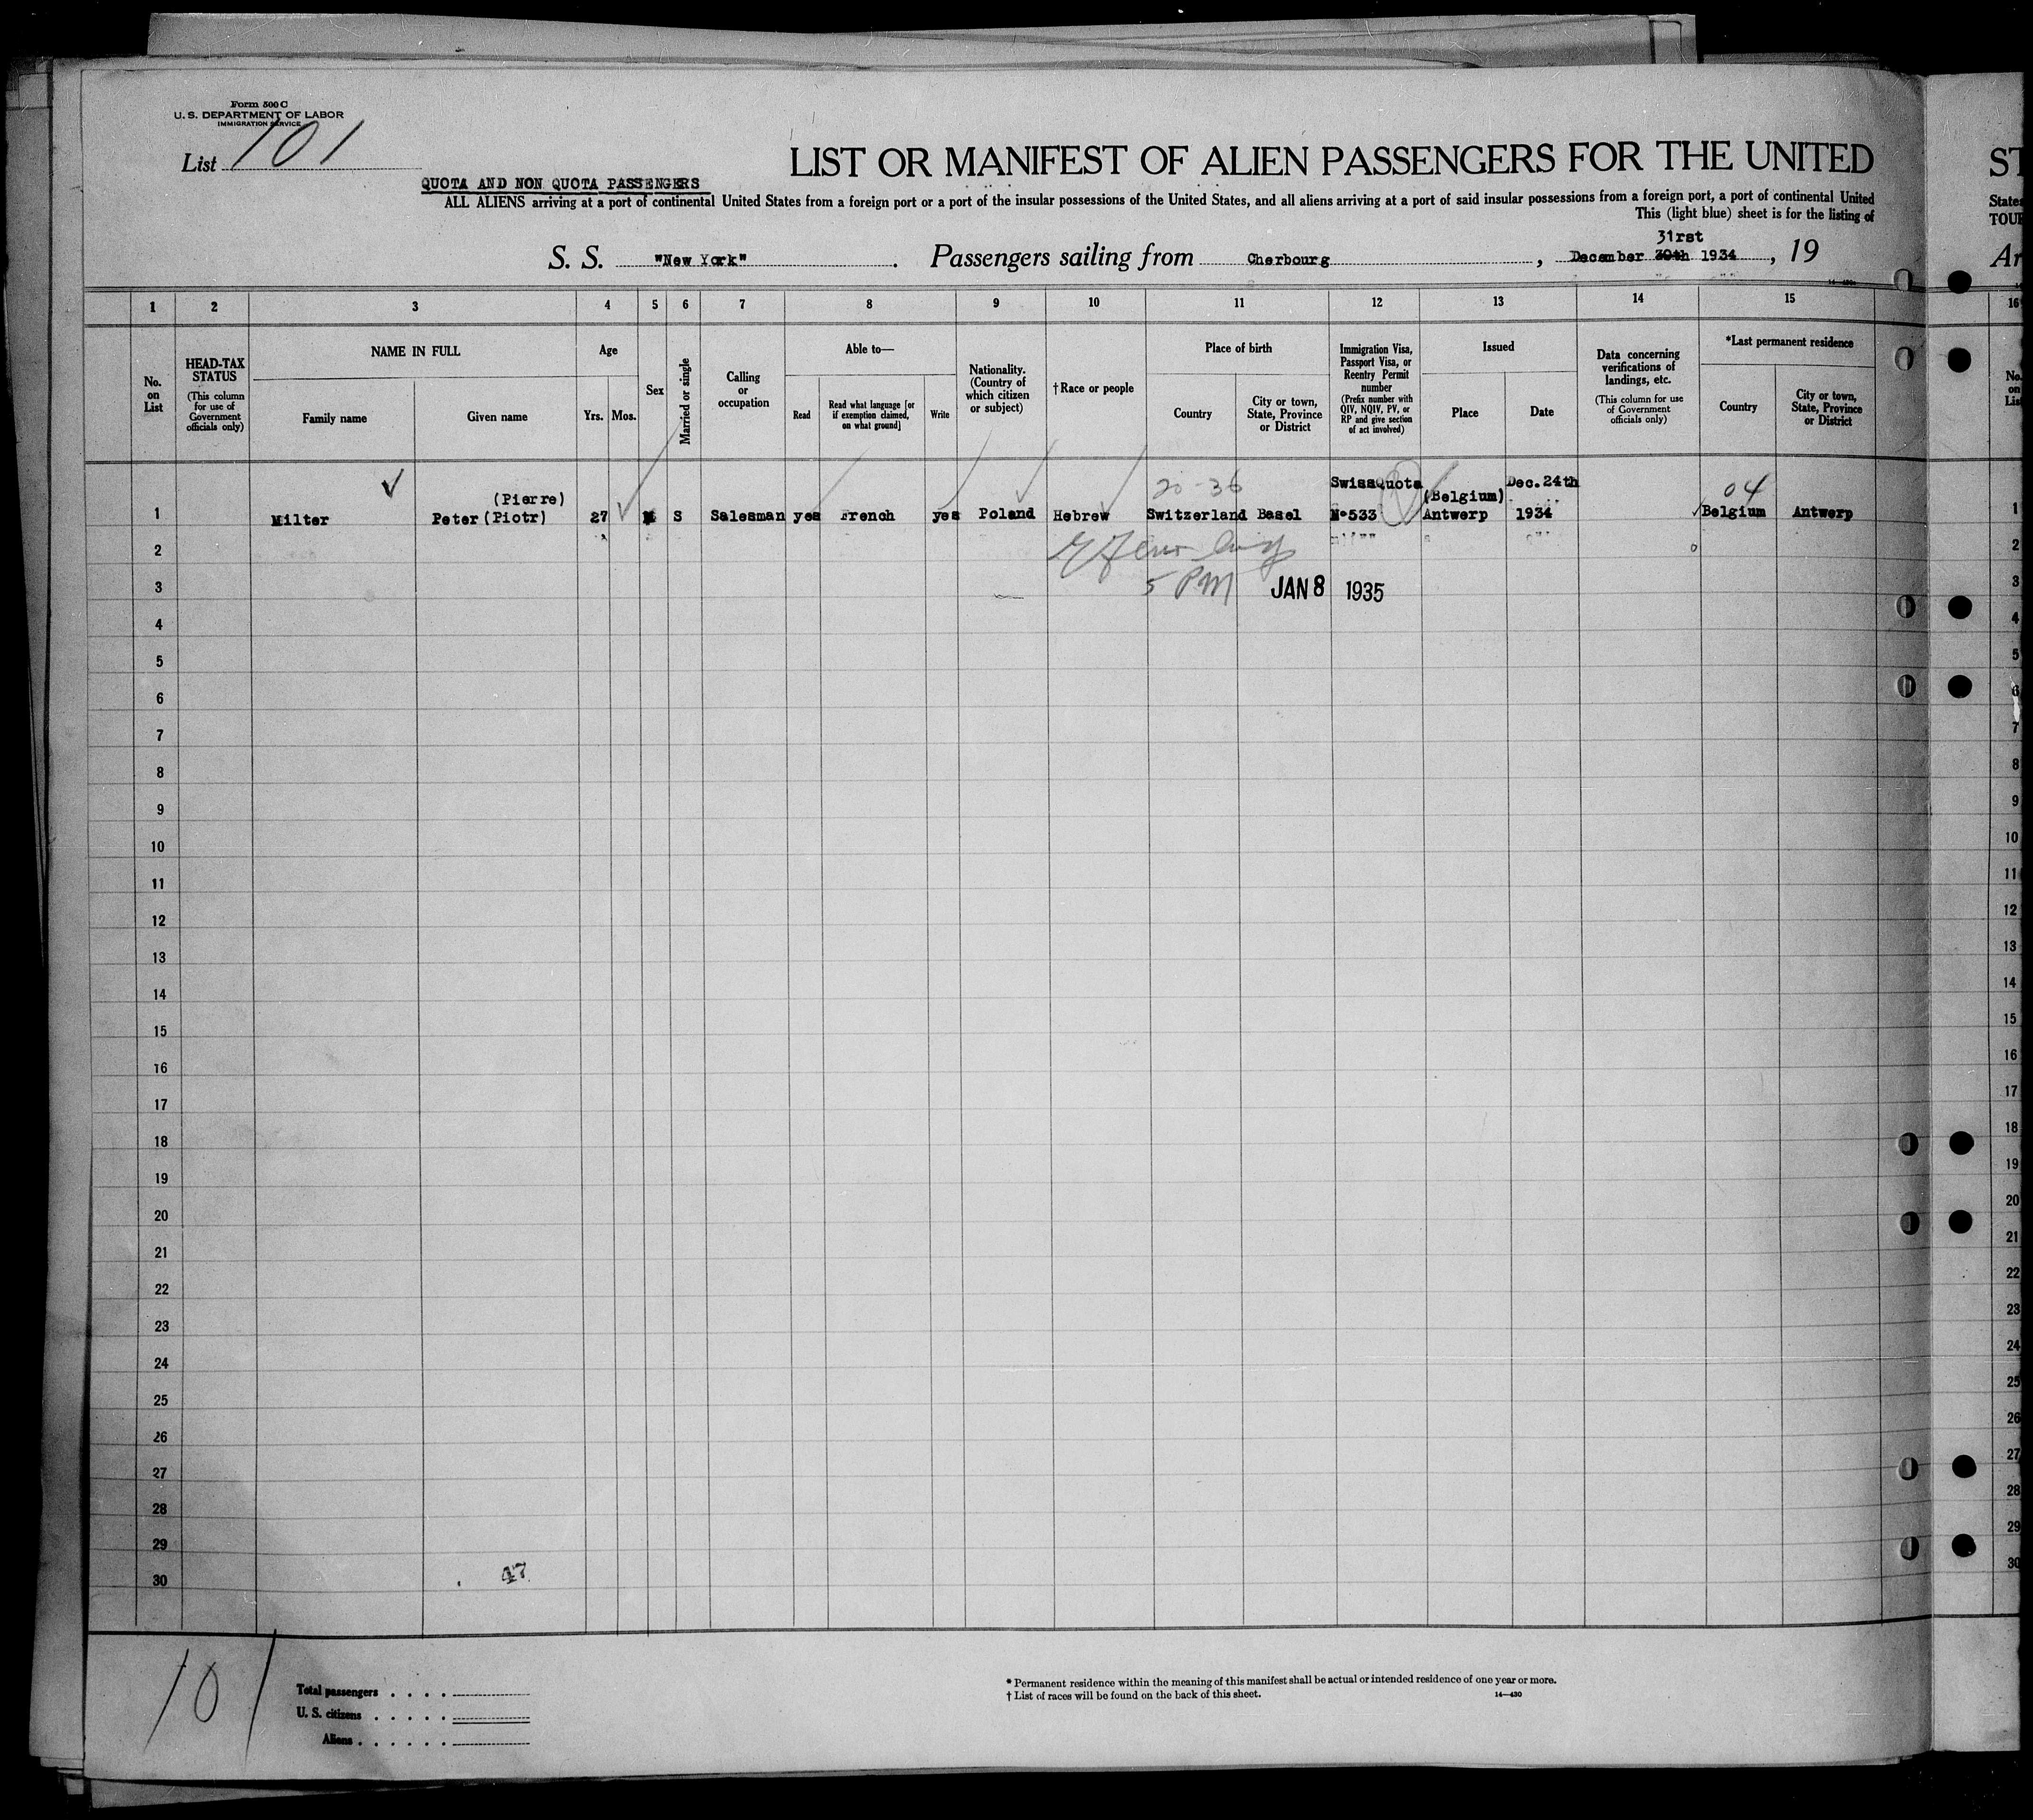 Form 500 C
U. S. DEPARTMENT OF LABOR
IMMIGRATION SERVICE
List 101
LIST OR MANIFEST OF ALIEN PASSENGERS FOR THE UNITED
QUOTA AND NON QUOTA PASSENGERS
ALL ALIENS arriving at a port of continental United States from a foreign port or a port of the insular possessions of the United States, and all aliens arriving at a port of said insular possessions from a foreign port, a port of continental United
This (light blue) sheet is for the listing of
31rst
S. S. "New York". Passengers sailing from Cherbourg, December 30th 1934, 19
1 2 3 4 5 6 7 8 9 10 11 12 13 14 15
No. on List
HEAD-TAX STATUS
(This column for use of Government officials only)
NAME IN FULL
Family name
Given name
Age
Yrs.
Mos.
Sex
Married or single
Calling or occupation
Able to—
Read
Read what language [or if exemption claimed, on what ground]
Write
Nationality. (Country of which citizen or subject)
† Race or people
Place of birth
Country
City or town, State, Province or District
Immigration Visa, Passport Visa, or Reentry Permit number
(Prefix number with QIV, NQIV, PV, or RP and give section of act involved)
Issued
Place
Date
Data concerning verifications of landings, etc.
(This column for use of Government officials only)
*Last permanent residence
Country
City or town, State, Province or District
20-36
04
(Pierre) SwissQuota (Belgium) Dec.24th
1 Milter Peter (Piotr) 27 M S Salesman yes French yes Poland Hebrew Switzerland Basel No533 Antwerp 1934 Belgium Antwerp
2
3 5 PM JAN 8 1935
4
5
6
7
8
9
10
11
12
13
14
15
16
17
18
19
20
21
22
23
24
25
26
27
28
29
30
47
101
Total passengers
U. S. citizens
Aliens
* Permanent residence within the meaning of this manifest shall be actual or intended residence of one year or more.
† List of races will be found on the back of this sheet.
14—430
ST
States
TOUR
Ar
16
No. on List
1
2
3
4
5
6
7
8
9
10
11
12
13
14
15
16
17
18
19
20
21
22
23
24
25
26
27
28
29
30